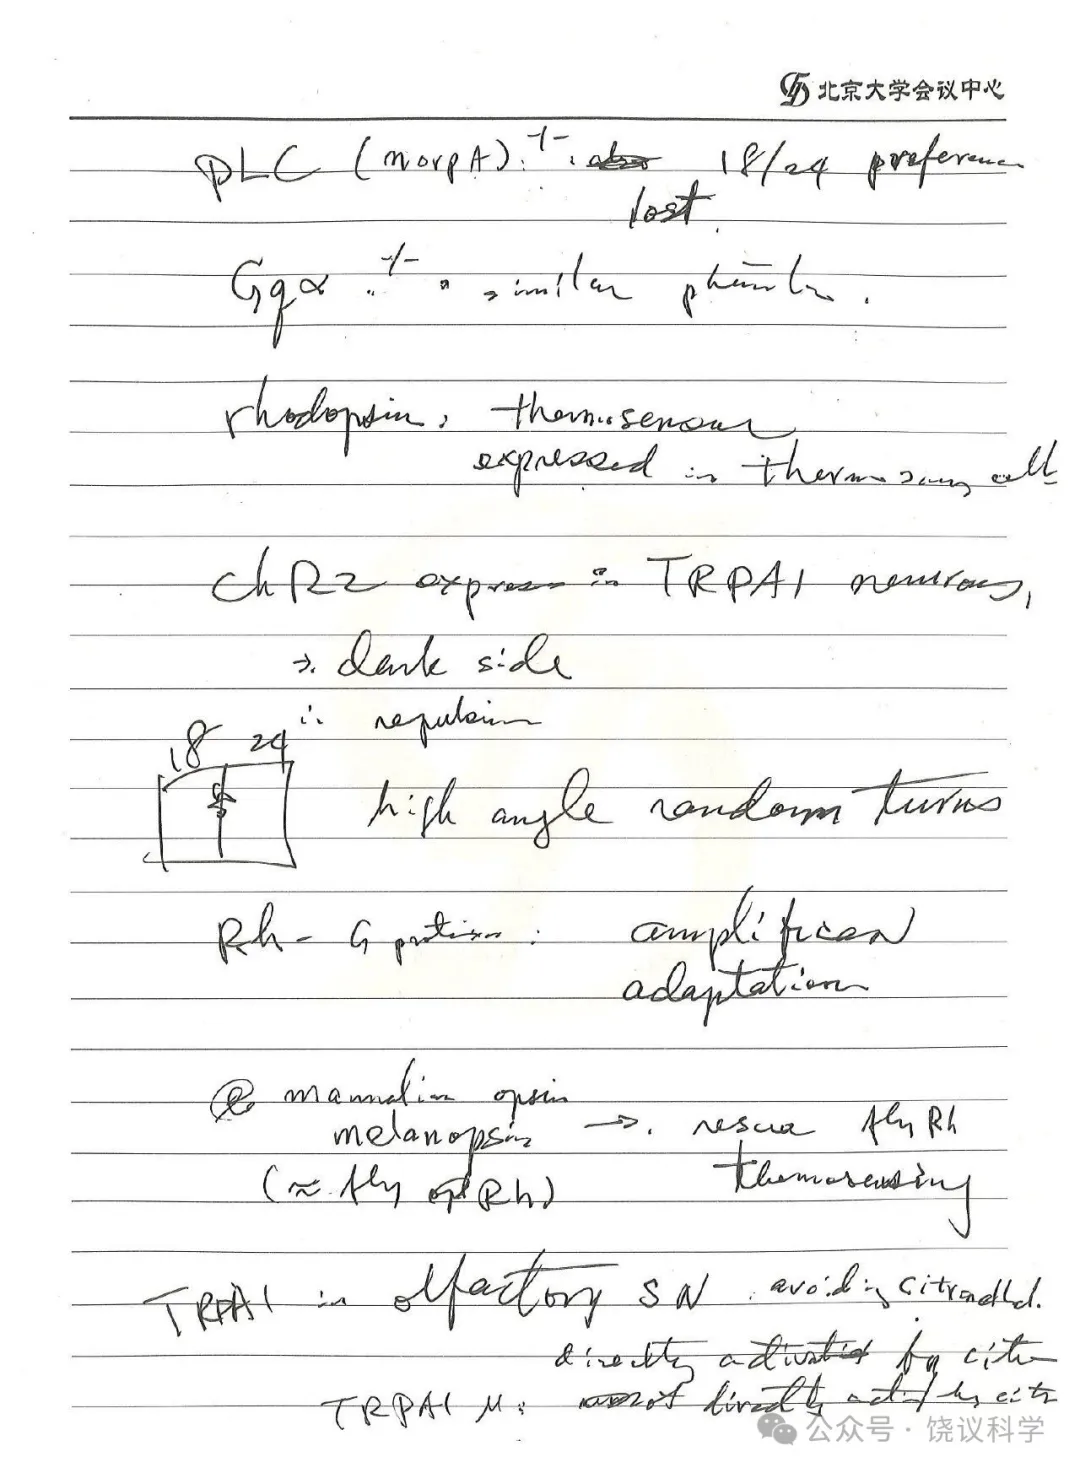 北京大学会议中心
PLC (norpA) -/- : 18/24 preference
lost.
Gqα -/- : similar
rhodopsin: thermosensor
expressed in thermosensing cell
ChR2 express in TRPA1 neurons,
→ dark side
∴ repulsion
18 24
high angle random turns
Rh - G protein :
amplification
adaptation
mammalian opsin
melanopsin → rescue fly Rh
(≈ fly Rh) thermosensing
TRPA1 in olfactory SN . avoiding
directly activated by
TRPA1 : not directly by
公众号 · 饶议科学